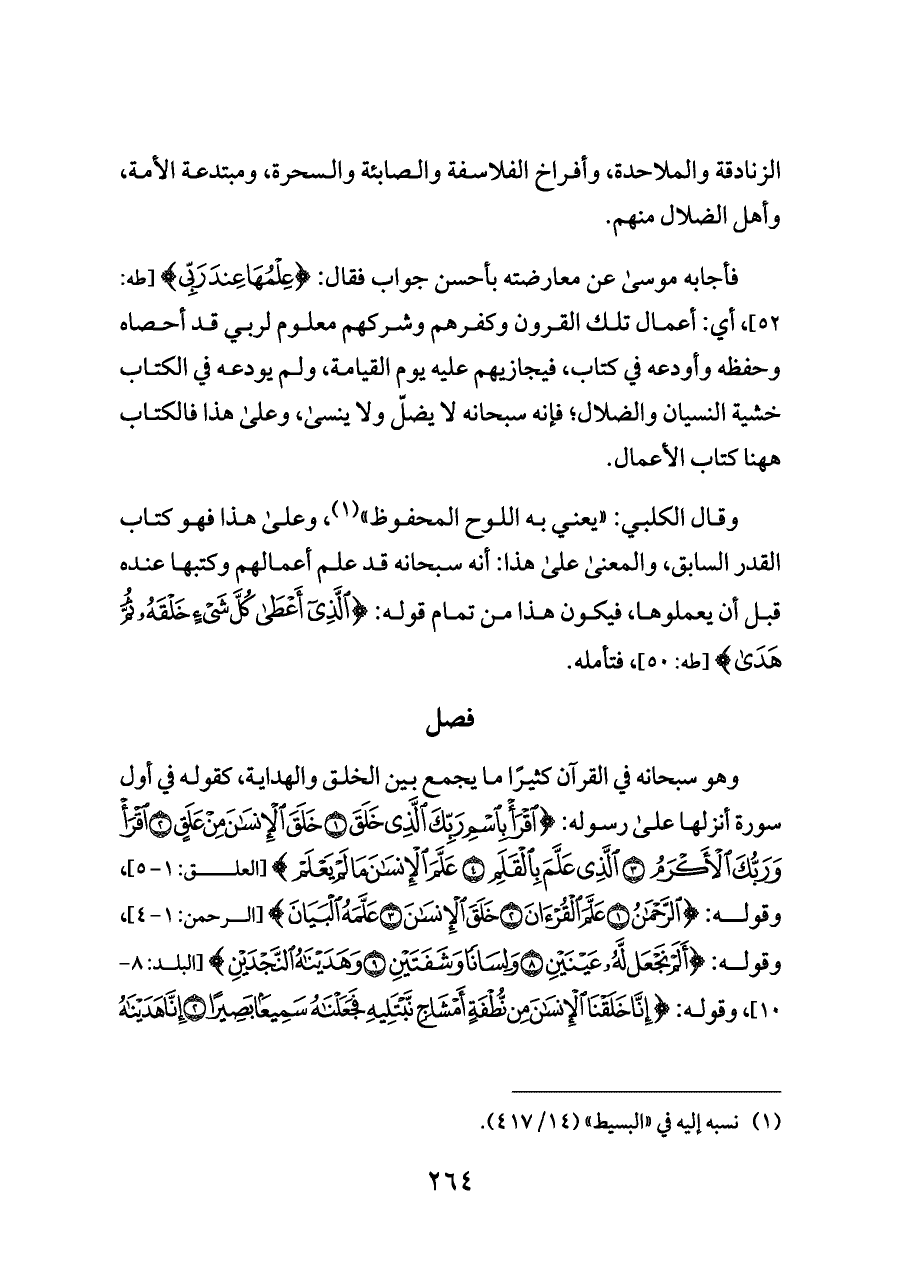 الزنادقة والملاحدة، وأفراخ الفلاسفة والصابئة والسحرة، ومبتدعة الأمة،
وأهل الضلال منهم.
فأجابه موسىٰ عن معارضته بأحسن جواب فقال: ﴿عِلْمُهَا عِندَ رَبِّى﴾ [طه:
٥٢]، أي: أعمال تلك القرون وكفرهم وشركهم معلوم لربي قد أحصاه
وحفظه وأودعه في كتاب، فيجازيهم عليه يوم القيامة، ولم يودعه في الكتاب
خشية النسيان والضلال؛ فإنه سبحانه لا يضلّ ولا ينسىٰ، وعلىٰ هذا فالكتاب
ههنا كتاب الأعمال.
وقال الكلبي: «يعني به اللوح المحفوظ»(١)، وعلىٰ هذا فهو كتاب
القدر السابق، والمعنىٰ علىٰ هذا: أنه سبحانه قد علم أعمالهم وكتبها عنده
قبل أن يعملوها، فيكون هذا من تمام قوله: ﴿ٱلَّذِىٓ أَعْطَىٰ كُلَّ شَىْءٍ خَلْقَهُۥ ثُمَّ
هَدَىٰ﴾ [طه: ٥٠]، فتأمله.
فصل
وهو سبحانه في القرآن كثيرًا ما يجمع بين الخلق والهداية، كقوله في أول
سورة أنزلها علىٰ رسوله: ﴿ٱقْرَأْ بِٱسْمِ رَبِّكَ ٱلَّذِى خَلَقَ ۝١ خَلَقَ ٱلْإِنسَٰنَ مِنْ عَلَقٍ ۝٢ ٱقْرَأْ
وَرَبُّكَ ٱلْأَكْرَمُ ۝٣ ٱلَّذِى عَلَّمَ بِٱلْقَلَمِ ۝٤ عَلَّمَ ٱلْإِنسَٰنَ مَا لَمْ يَعْلَمْ﴾ [العلق: ١-٥]،
وقوله: ﴿ٱلرَّحْمَٰنُ ۝١ عَلَّمَ ٱلْقُرْءَانَ ۝٢ خَلَقَ ٱلْإِنسَٰنَ ۝٣ عَلَّمَهُ ٱلْبَيَانَ﴾ [الرحمن: ١-٤]،
وقوله: ﴿أَلَمْ نَجْعَل لَّهُۥ عَيْنَيْنِ ۝٨ وَلِسَانًا وَشَفَتَيْنِ ۝٩ وَهَدَيْنَٰهُ ٱلنَّجْدَيْنِ﴾ [البلد: ٨-
١٠]، وقوله: ﴿إِنَّا خَلَقْنَا ٱلْإِنسَٰنَ مِن نُّطْفَةٍ أَمْشَاجٍ نَّبْتَلِيهِ فَجَعَلْنَٰهُ سَمِيعًۢا بَصِيرًا ۝٢ إِنَّا هَدَيْنَٰهُ
(١) نسبه إليه في «البسيط» (١٤/ ٤١٧).
٢٦٤